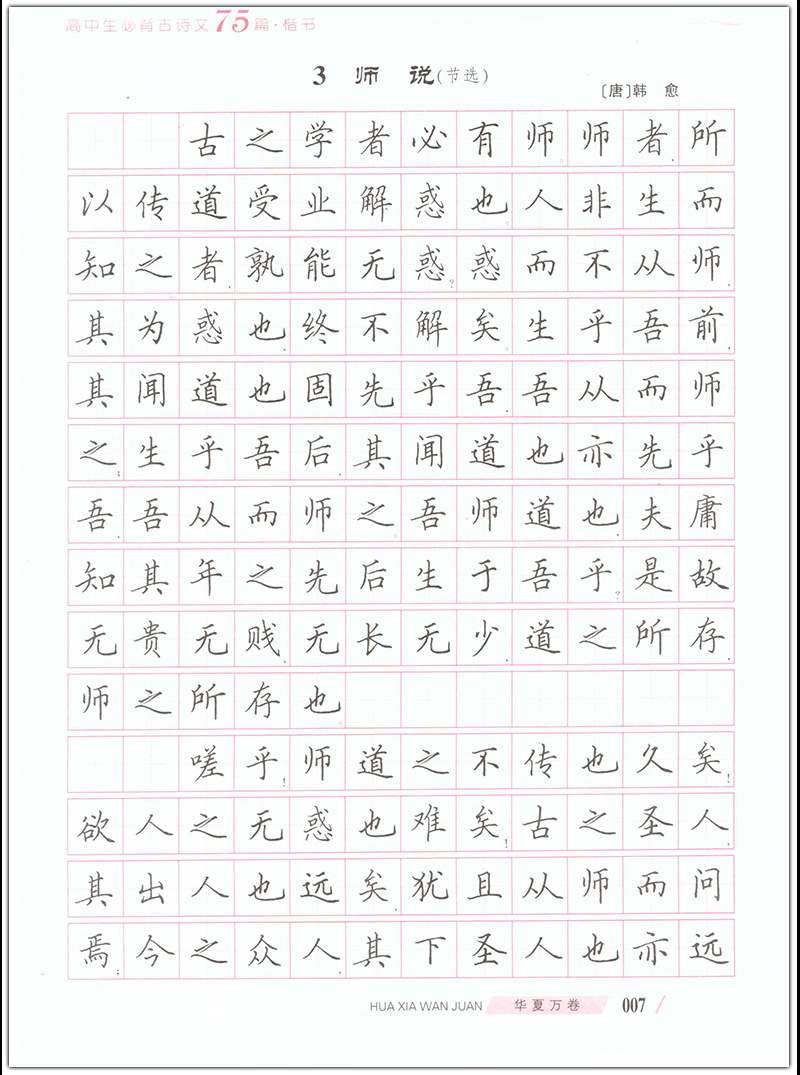 高中生必背古诗文75篇·楷书
3 师 说(节选)
〔唐〕韩 愈
古之学者必有师。师者,所
以传道受业解惑也。人非生而
知之者,孰能无惑?惑而不从师,
其为惑也,终不解矣。生乎吾前,
其闻道也固先乎吾,吾从而师
之;生乎吾后,其闻道也亦先乎
吾,吾从而师之。吾师道也,夫庸
知其年之先后生于吾乎?是故
无贵无贱,无长无少,道之所存,
师之所存也。
嗟乎!师道之不传也久矣!
欲人之无惑也难矣!古之圣人,
其出人也远矣,犹且从师而问
焉;今之众人,其下圣人也亦远
HUA XIA WAN JUAN 华夏万卷 007